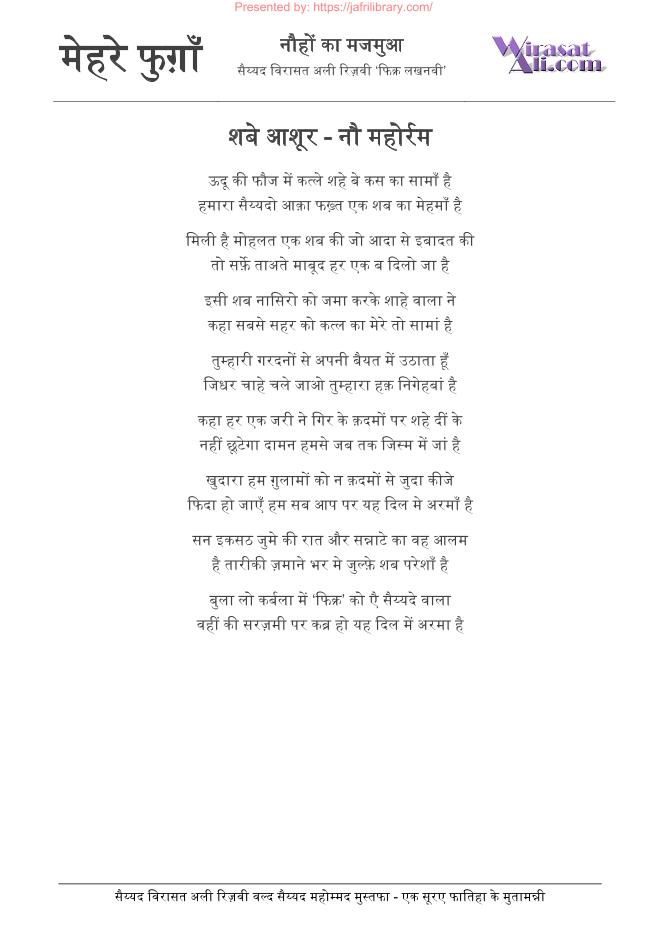 Presented by: https://jafrilibrary.com/
मेहरे फुग़ाँ
नौहों का मजमुआ
सैय्यद विरासत अली रिज़वी ‘फिक्र लखनवी’
Wirasat
Ali.com
शबे आशूर - नौ महोर्रम
ऊदू की फौज में कत्ले शहे बे कस का सामाँ है
हमारा सैय्यदो आक़ा फख़्त एक शब का मेहमाँ है
मिली है मोहलत एक शब की जो आदा से इबादत की
तो सर्फ़े ताअते माबूद हर एक ब दिलो जा है
इसी शब नासिरो को जमा करके शाहे वाला ने
कहा सबसे सहर को कत्ल का मेरे तो सामां है
तुम्हारी गरदनों से अपनी बैयत में उठाता हूँ
जिधर चाहे चले जाओ तुम्हारा हक़ निगेहबां है
कहा हर एक जरी ने गिर के क़दमों पर शहे दीं के
नहीं छूटेगा दामन हमसे जब तक जिस्म में जां है
खुदारा हम ग़ुलामों को न क़दमों से जुदा कीजे
फिदा हो जाएँ हम सब आप पर यह दिल मे अरमाँ है
सन इकसठ जुमे की रात और सन्नाटे का वह आलम
है तारीकी ज़माने भर मे जुल्फ़े शब परेशाँ है
बुला लो कर्बला में ‘फिक्र’ को एै सैय्यदे वाला
वहीं की सरज़मी पर कब्र हो यह दिल में अरमा है
सैय्यद विरासत अली रिज़वी वल्द सैय्यद महोम्मद मुस्तफा - एक सूरए फातिहा के मुतामन्नी